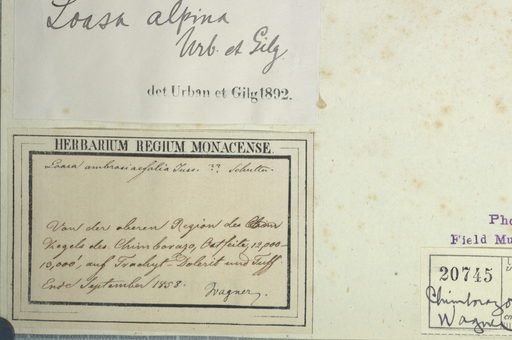 Loasa alpina
Urb. et Gilg.
det Urban et Gilg 1892.
HERBARIUM REGIUM MONACENSE.
Loasa ambrosiaefolia Juss. ??
Von der oberen Region des
Kegels des Chimborazo, Ostseite, 12,000-
13,000', auf Trachyt-Dolerit und Tuff
Ende September 1858. Wagner.
Pho
Field Mu
20745
Chimborazo
Wagner